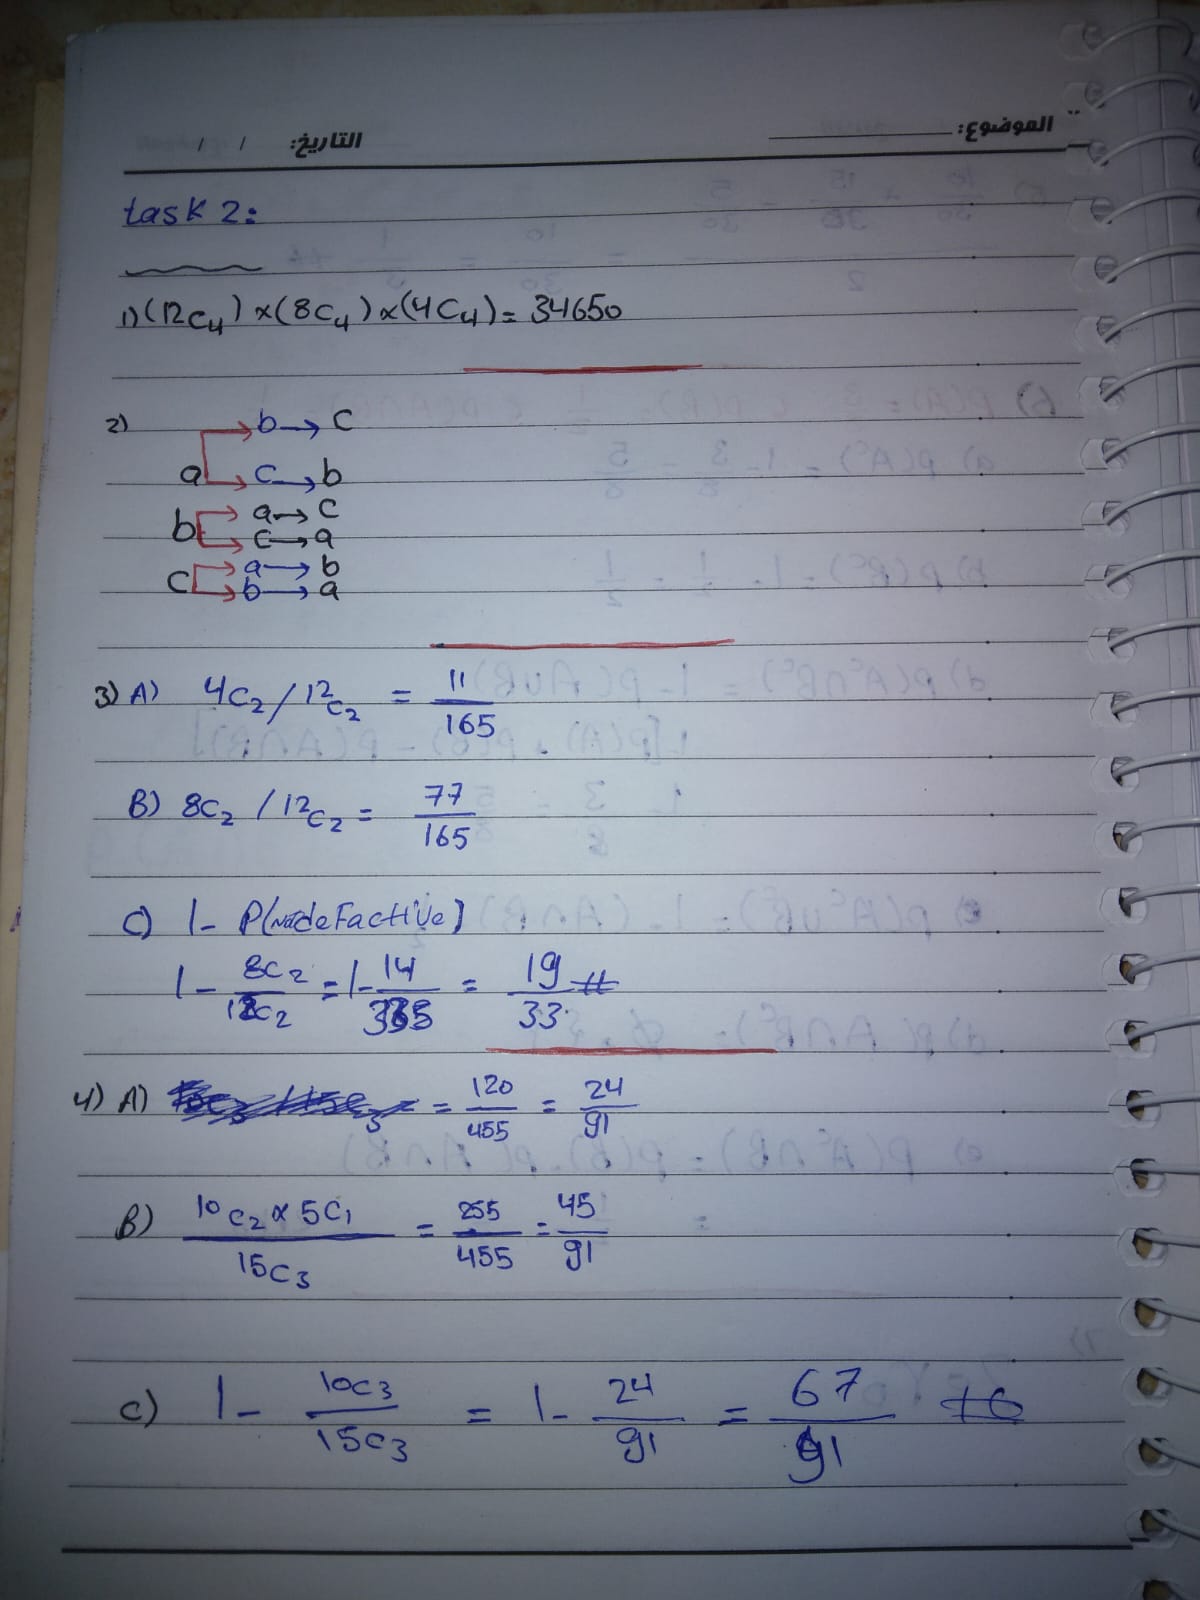 الموضوع:
التاريخ: / /
task 2:
1) (12C4) x (8C4) x (4C4) = 34650
2)
b → C
a C → b
b a → C
C → a
C a → b
b → a
3) A) 4C2 / 12C2 = 11/165
B) 8C2 / 12C2 = 77/165
C) 1 - P(
1 - 8C2/12C2 = 1 - 14/33 = 19/33 #
4) A) = 120/455 = 24/91
B) 10C2 x 5C1 / 15C3 = /455 = 45/91
C) 1 - 10C3/15C3 = 1 - 24/91 = 67/91